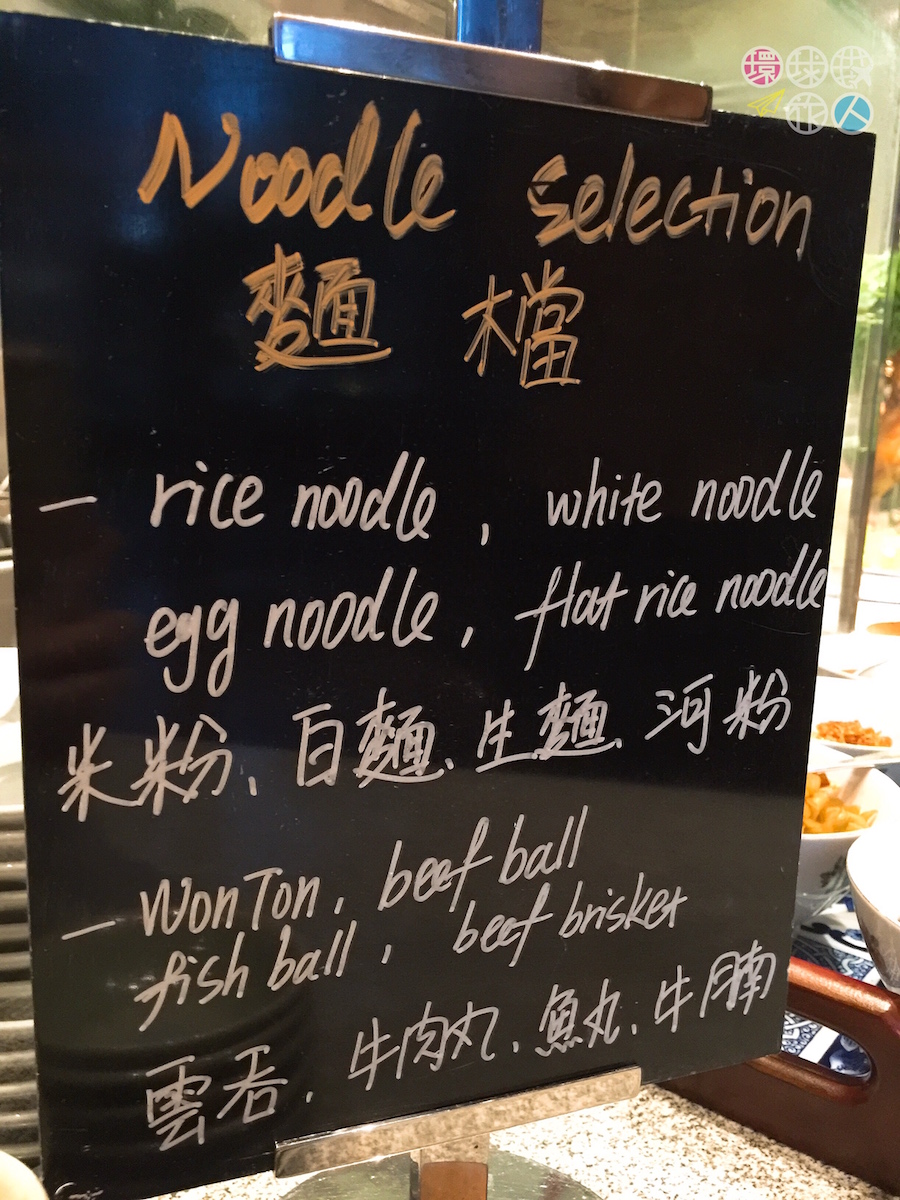 環球旅人
Noodle Selection
麵 檔
— rice noodle , white noodle
egg noodle , flat rice noodle
米粉、白麵、生麵、河粉
— WonTon, beef ball
fish ball , beef brisket
雲吞、牛肉丸、魚丸、牛腩